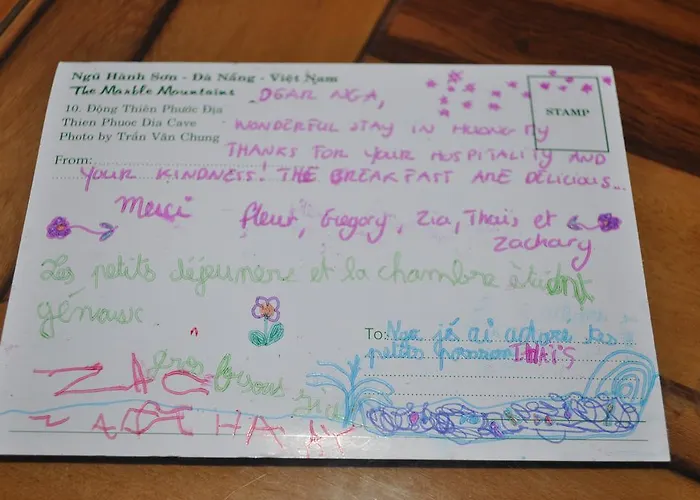 Ngũ Hành Sơn - Đà Nẵng - Việt Nam
The Marble Mountains
10. Động Thiên Phước Địa
Thien Phuoc Dia Cave
Photo by Trần Văn Chung
From:
STAMP
DEAR NGA,
WONDERFUL STAY IN HUONG MY
THANKS FOR YOUR HOSPITALITY AND
YOUR KINDNESS! THE BREAKFAST ARE DELICIOUS...
Merci
fleur, Gregory, Zia, Thaïs et
Zachary
Les petits déjeunère et la chambre étaient
génaux
gros bisous Zia
To: Nga jé ai adoré tes
petits THAÏS
ZAC
ZACHARY